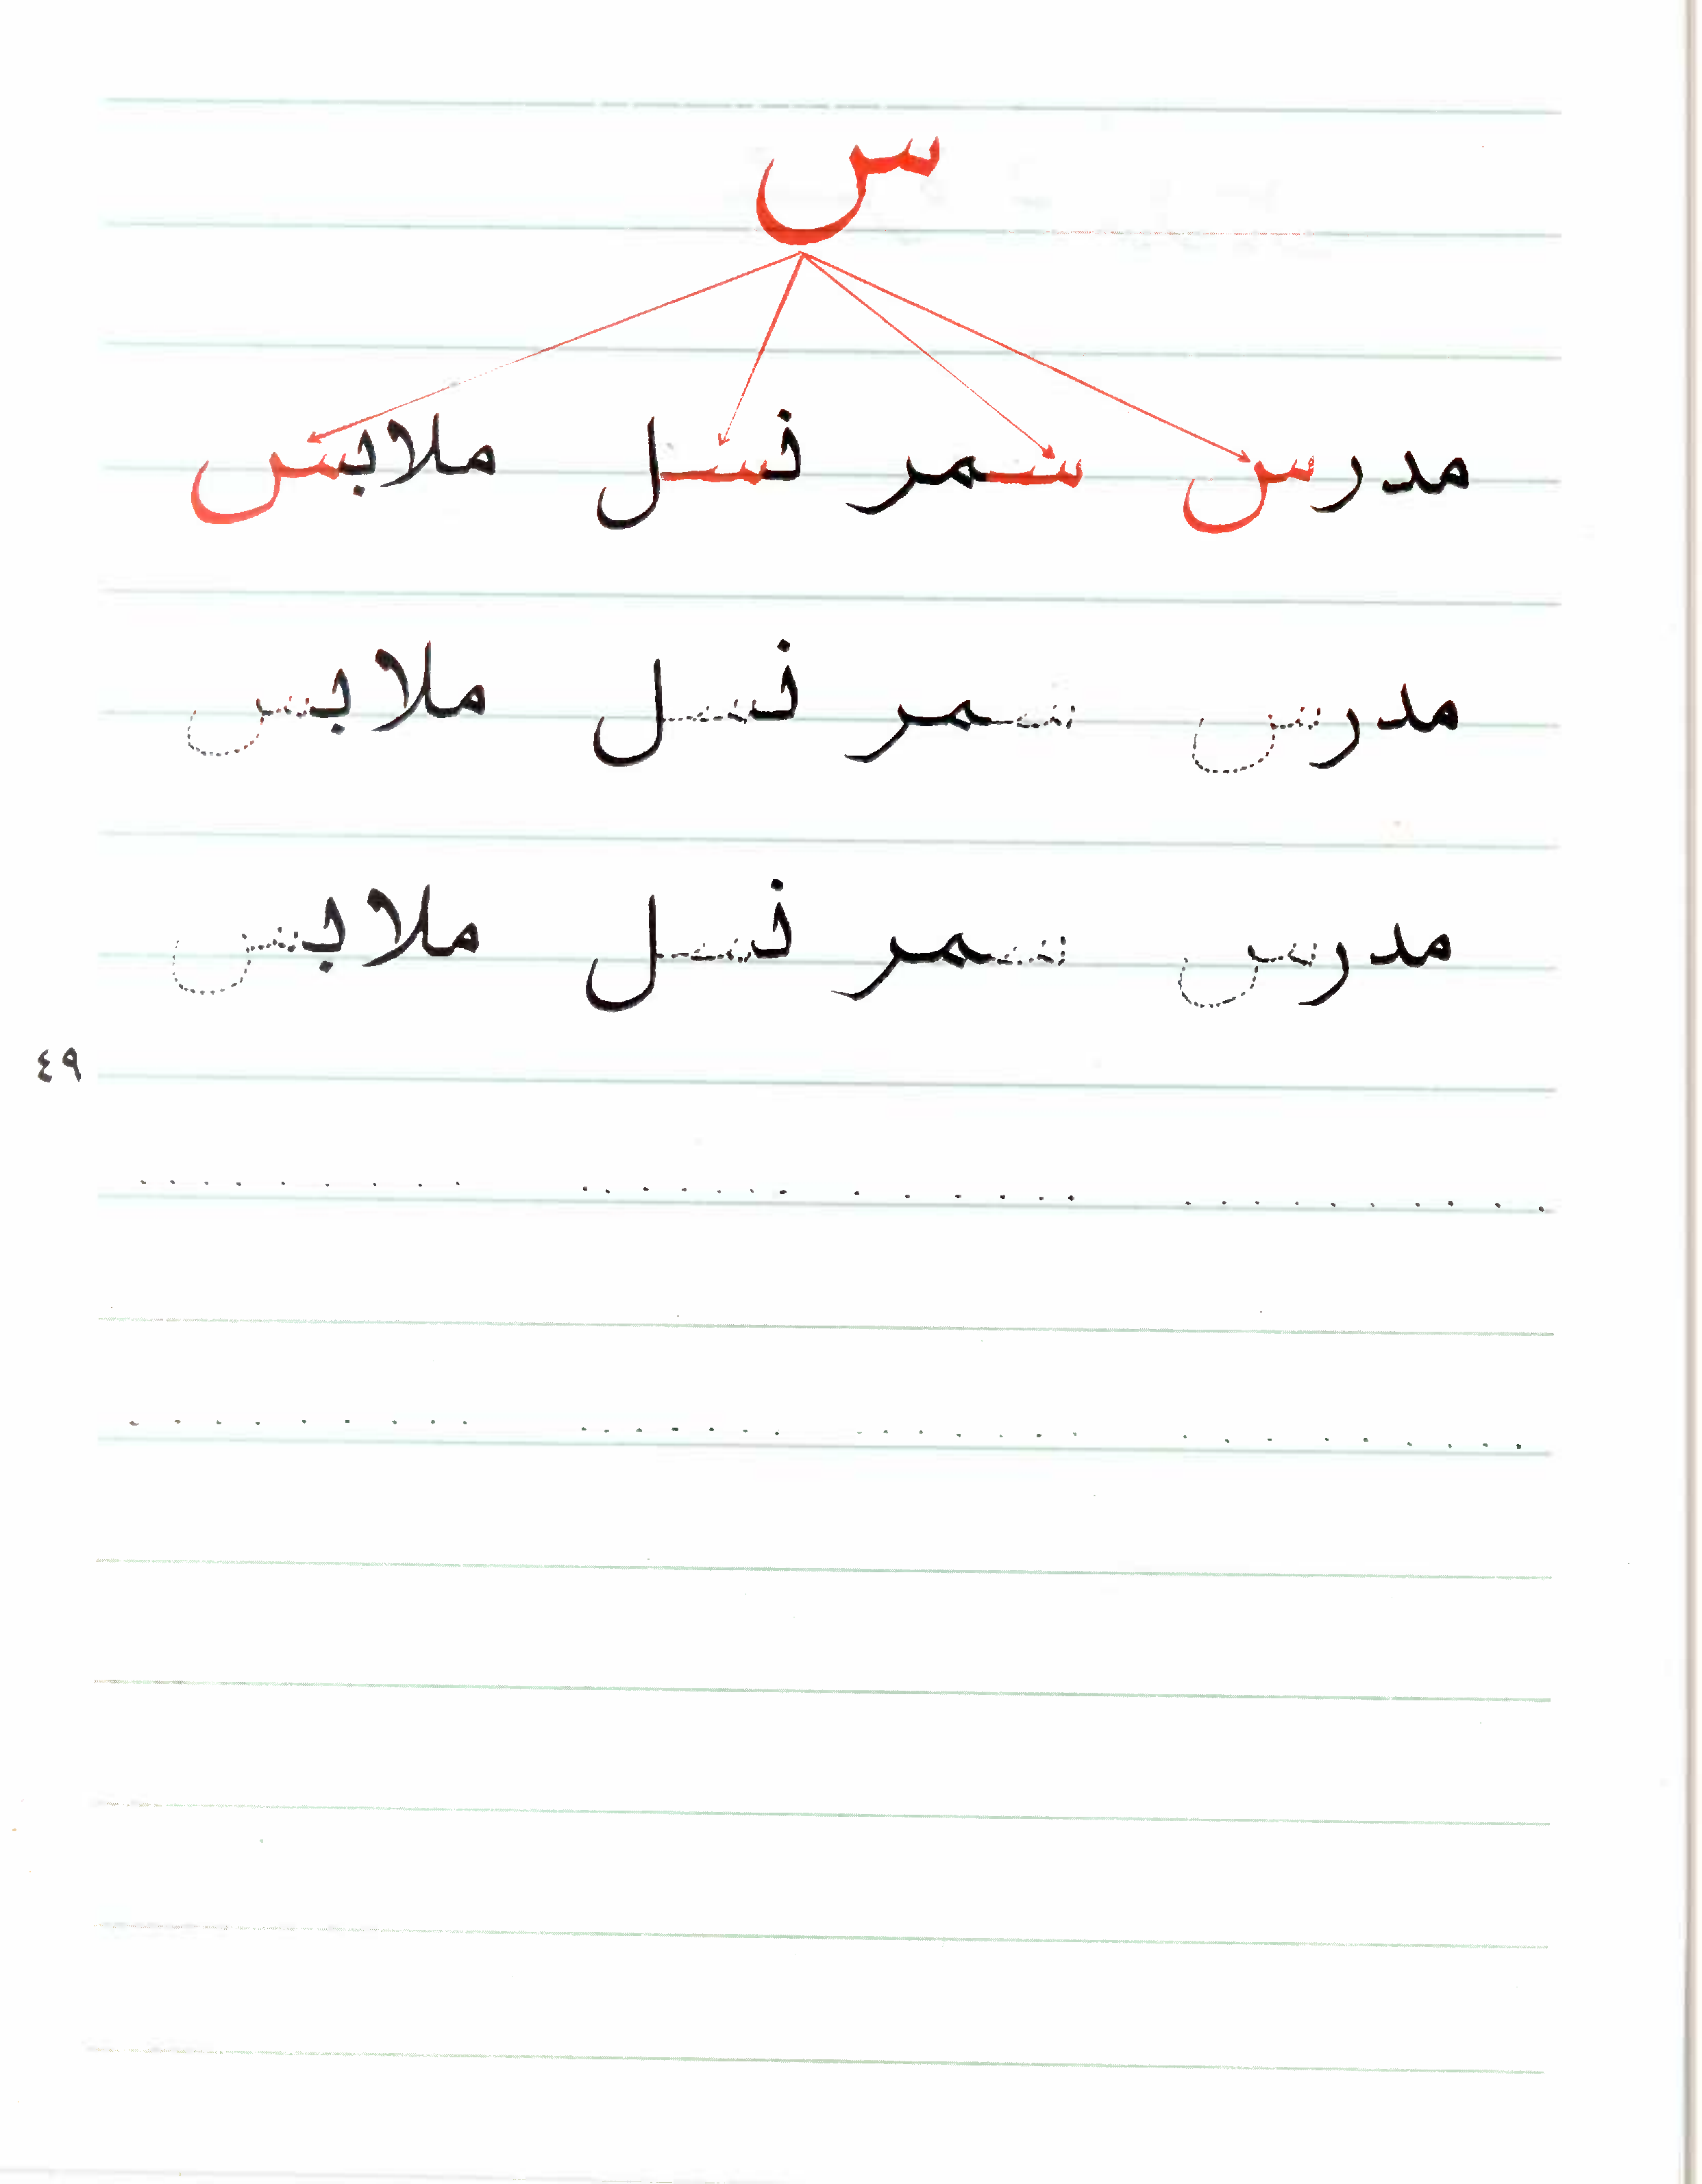 س
مدرس سمر فسل ملابس
مدرس سمر فسل ملابس
مدرس سمر فسل ملابس
٤٩